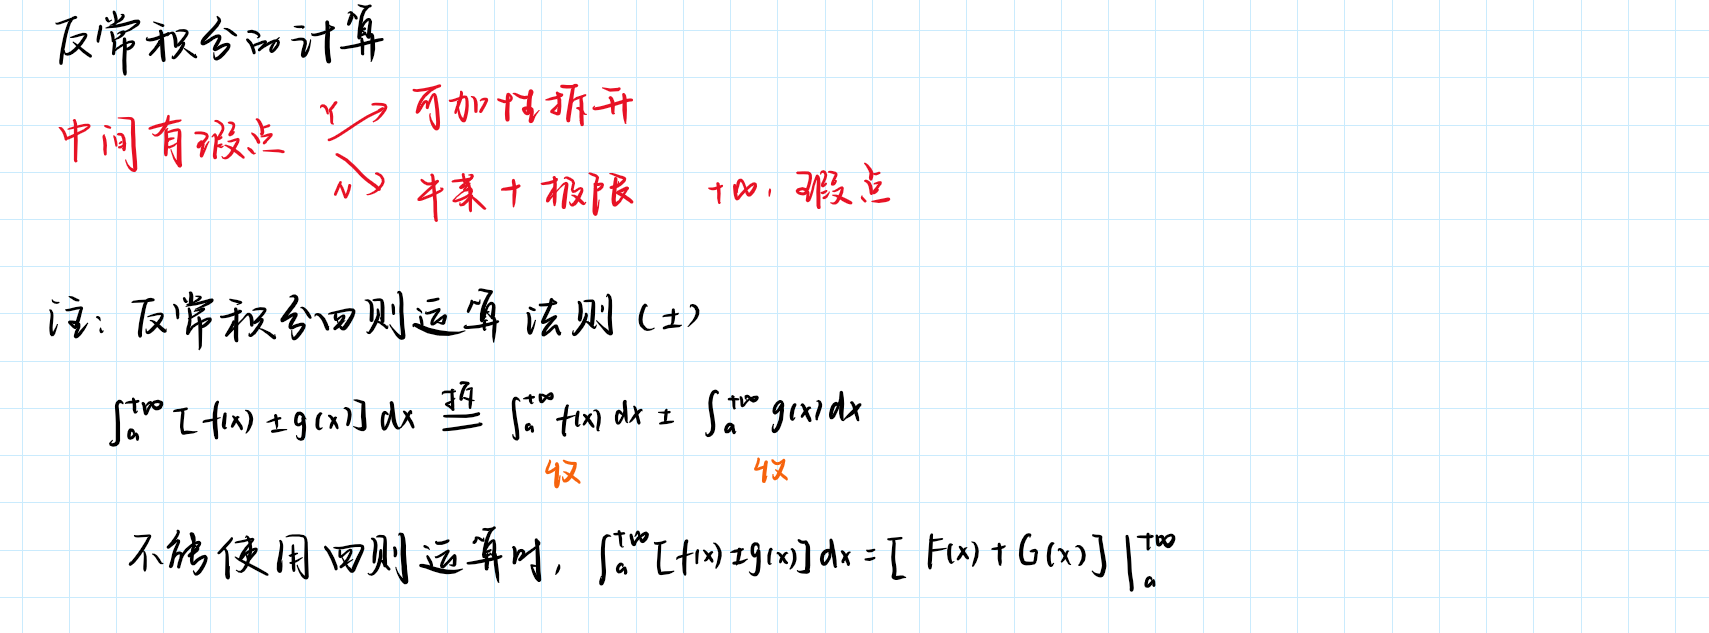 反常积分的计算
中间有瑕点 Y 可加性拆开
N 牛莱 + 极限 +∞, 瑕点
注: 反常积分四则运算法则 (±)
∫ₐ⁺∞ [f(x) ± g(x)] dx 拆= ∫ₐ⁺∞ f(x) dx ± ∫ₐ⁺∞ g(x) dx
收 收
不能使用四则运算时, ∫ₐ⁺∞ [f(x) ± g(x)] dx = [F(x) + G(x)] |ₐ⁺∞